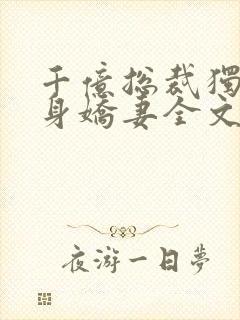 千億總裁獨
身嬌妻全文
夜游一日夢